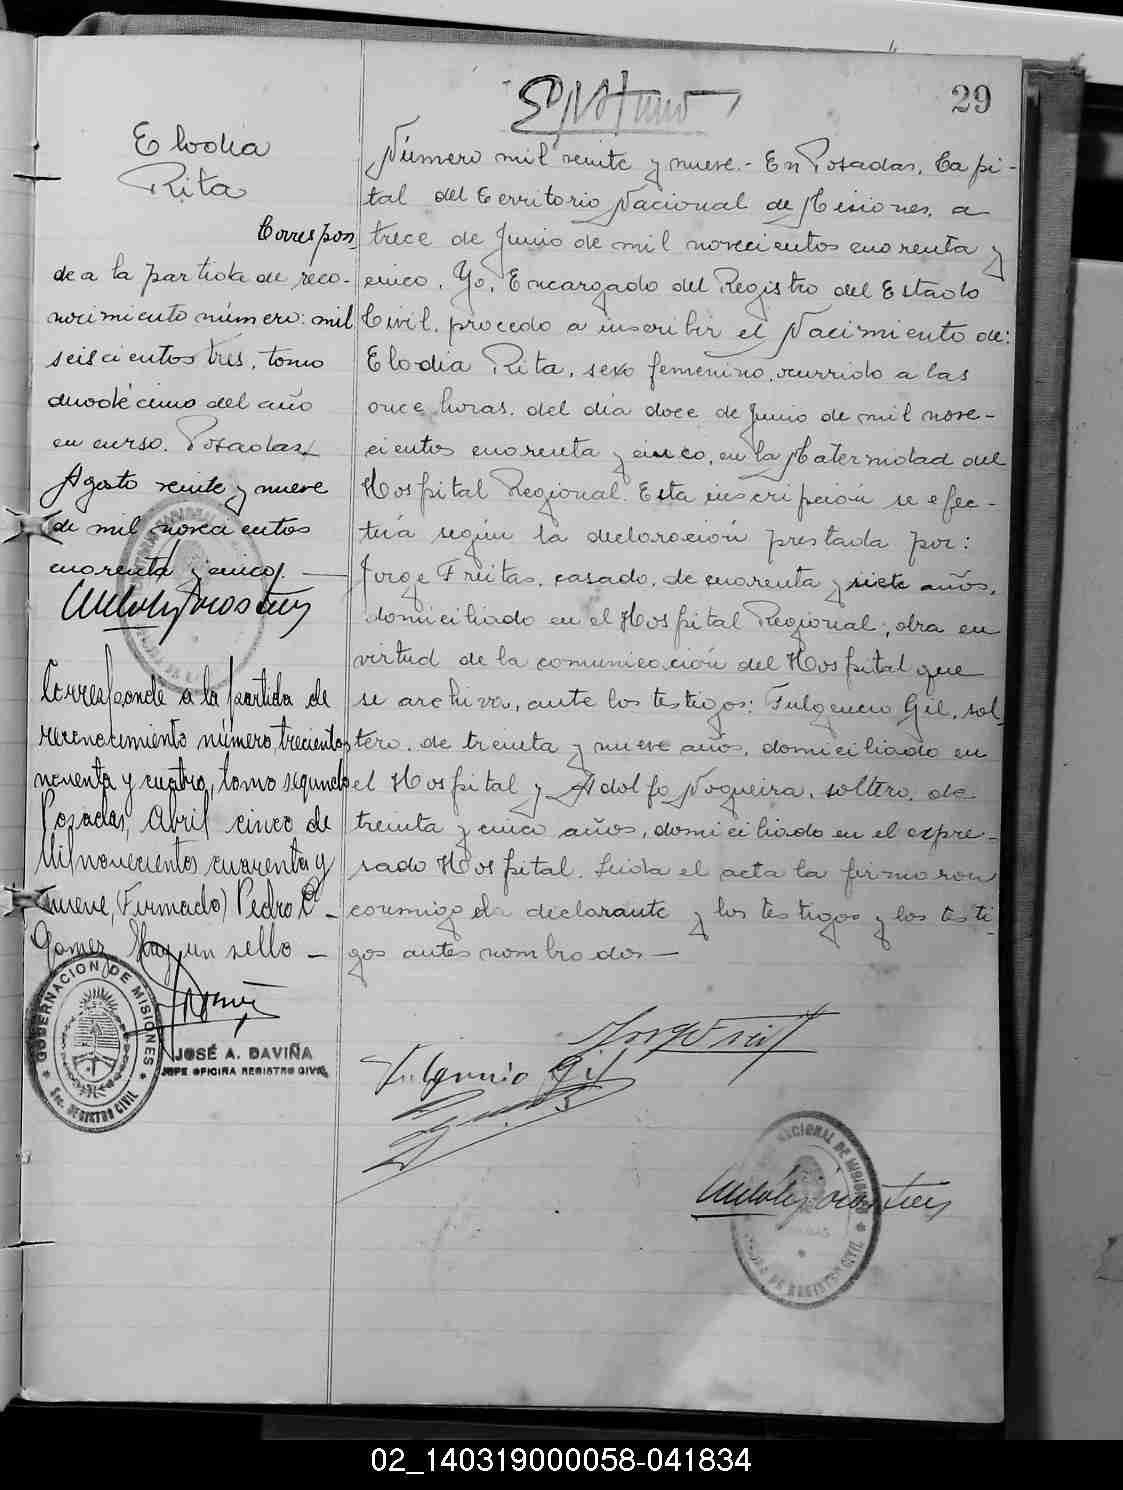 29
Elodia
Rita
Correspon
de a la partida de reco-
nocimiento número: mil
seiscientos tres, tomo
duodécimo del año
en curso. Posadas,
Agosto veinte y nueve
de mil novecientos
cuarenta y cinco. —
Corresponde a la partida de
reconocimiento número trecientos
noventa y cuatro, tomo segundo
Posadas, Abril cinco de
Mil novecientos cuarenta y
nueve, (Firmado) Pedro
Gomez Hay un sello —
GOBERNACION DE MISIONES
Sec. REGISTRO CIVIL
JOSÉ A. DAVIÑA
JEFE OFICINA REGISTRO CIVIL
Número mil veinte y nueve.- En Posadas, Capi-
tal del Territorio Nacional de Misiones, a
trece de Junio de mil novecientos cuarenta y
cinco. Yo, Encargado del Registro del Estado
Civil, procedo a inscribir el Nacimiento de:
Elodia Rita, sexo femenino, ocurrido a las
once horas, del día doce de Junio de mil nove-
cientos cuarenta y cinco, en la Maternidad del
Hospital Regional. Esta inscripción se efec-
túa según la declaración prestada por:
Jorge Freitas, casado, de cuarenta y siete años,
domiciliado en el Hospital Regional; obra en
virtud de la comunicación del Hospital que
se archiva, ante los testigos: Fulgencio Gil, sol-
tero, de treinta y nueve años, domiciliado en
el Hospital y Adolfo Nogueira, soltero, de
treinta y cinco años, domiciliado en el expre-
sado Hospital. Leída el acta la firmaron
conmigo el declarante y los testigos y los testi-
gos antes nombrados —
Fulgencio Gil
NACIONAL DE MISIONES
DE REGISTRO CIVIL
02_140319000058-041834